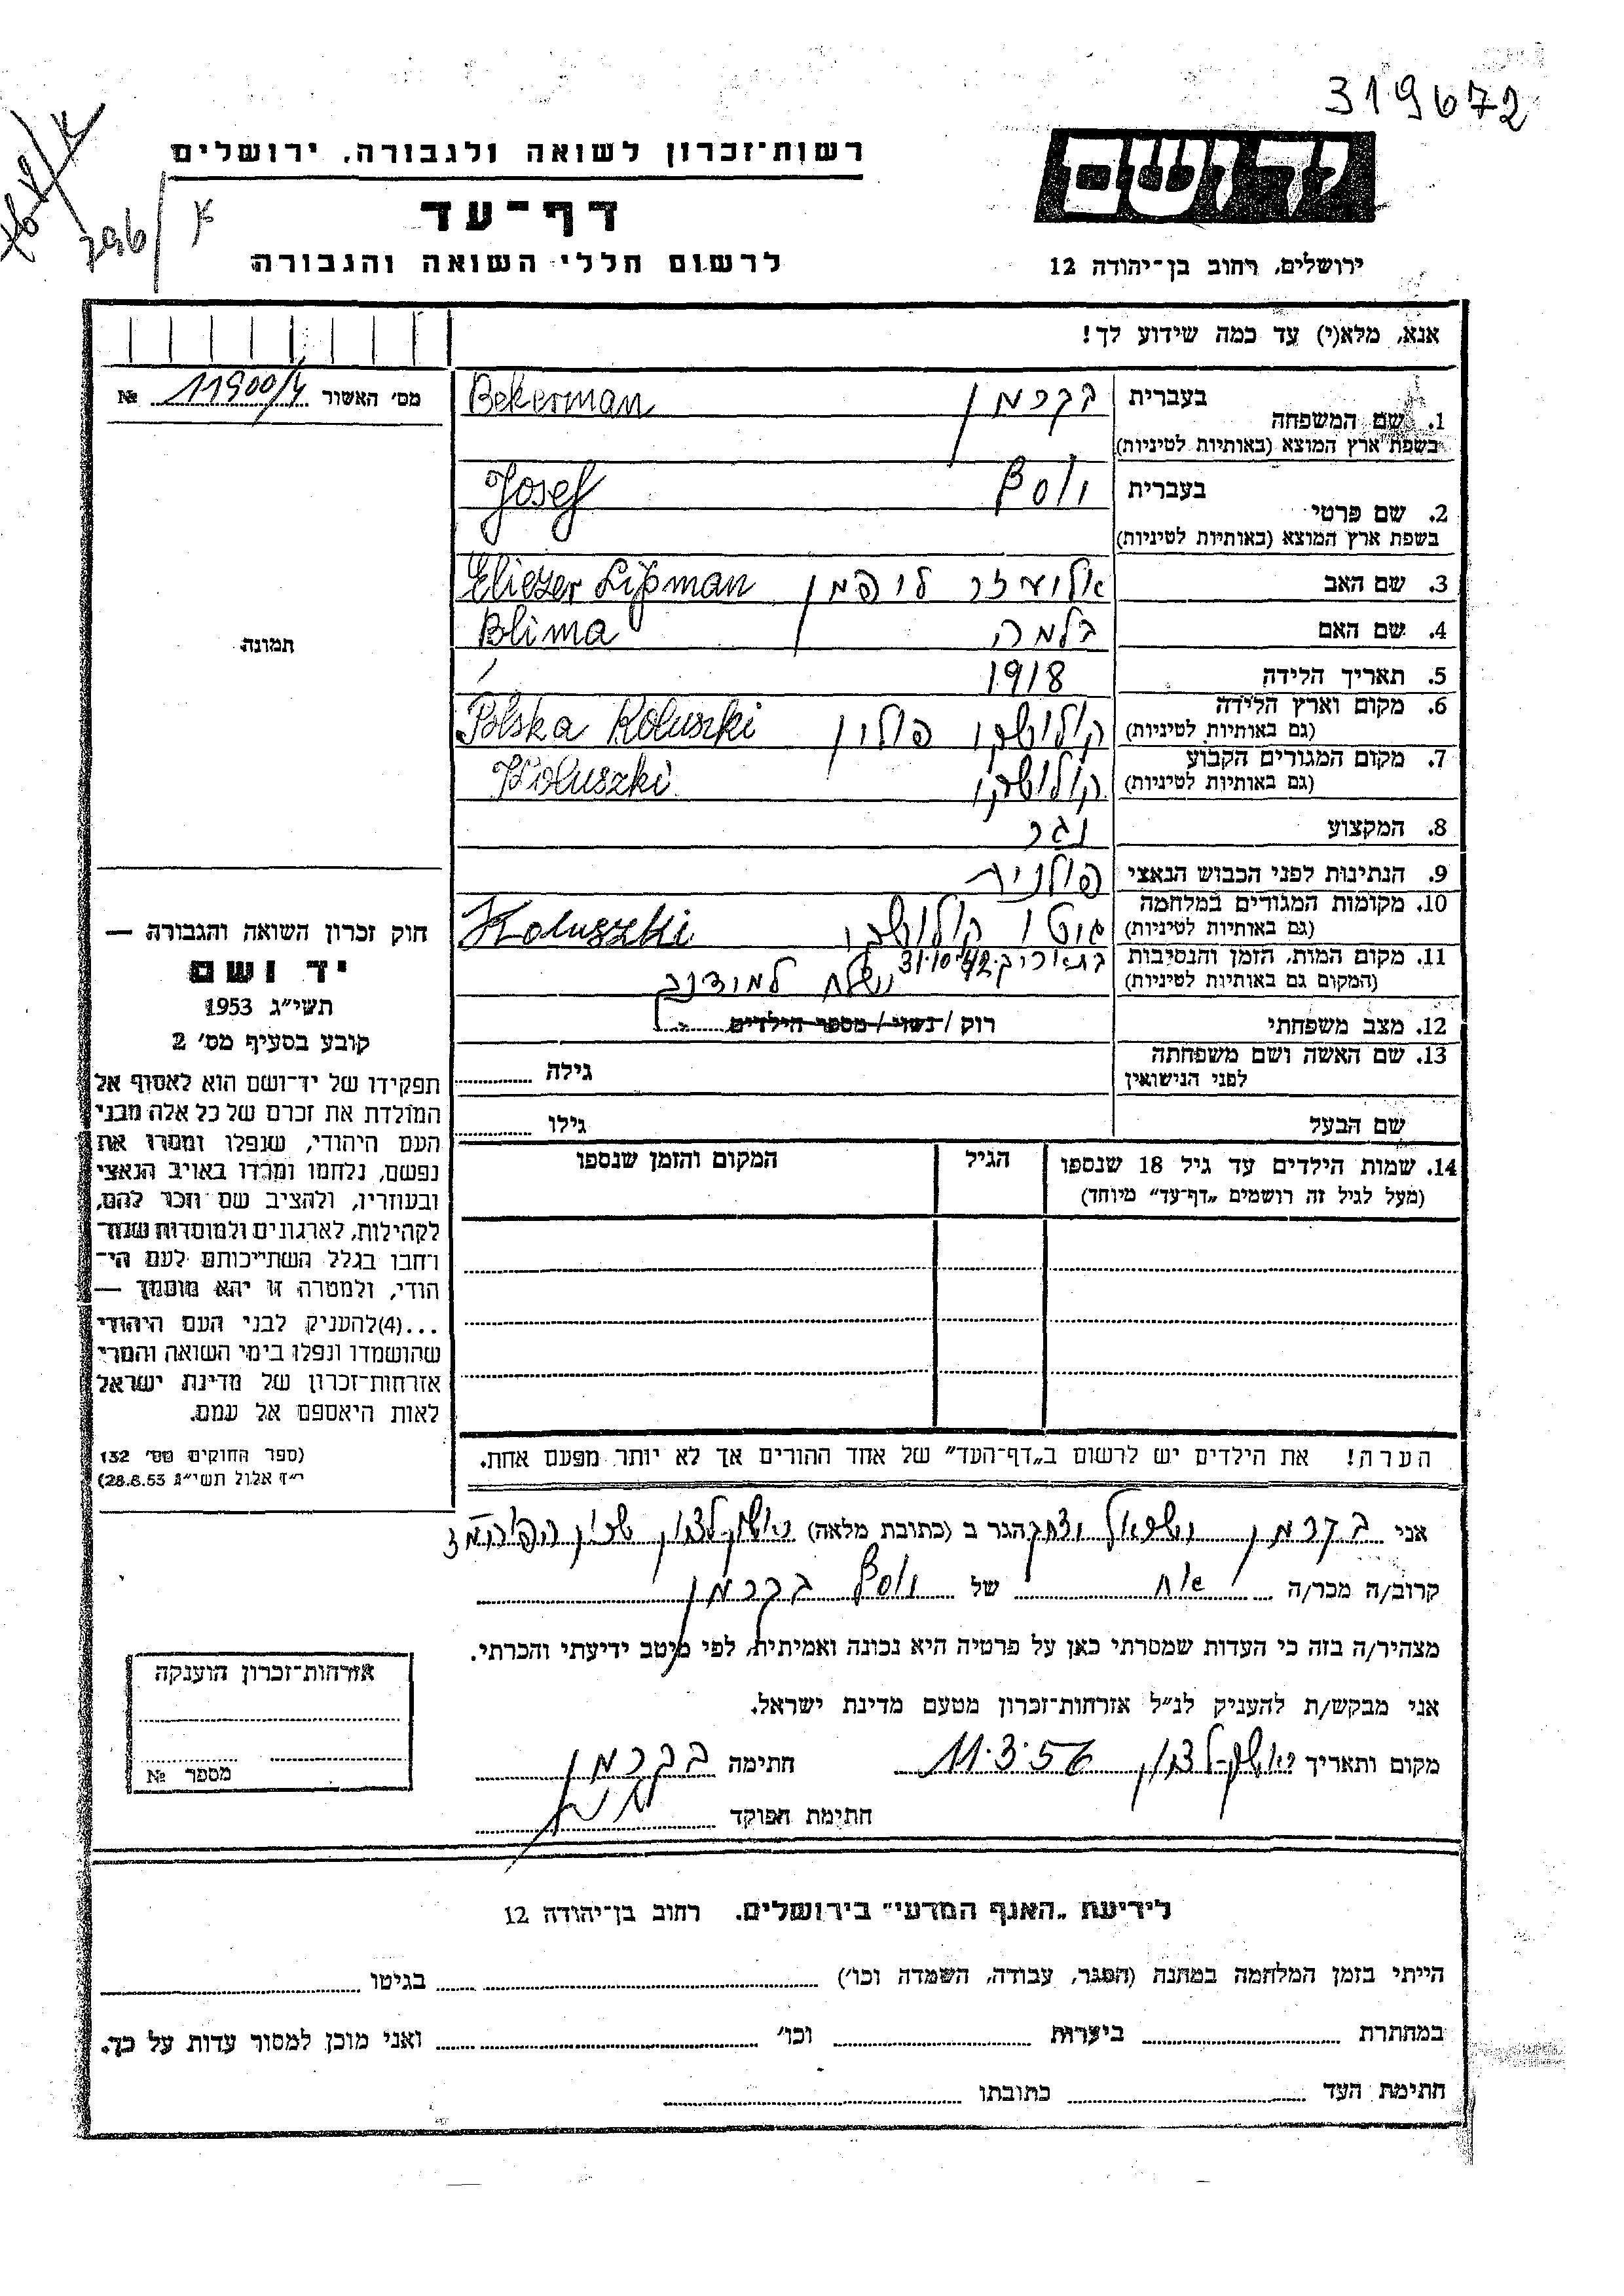 319672
רשות-זכרון לשואה ולגבורה, ירושלים
יד ושם
דף-עד
796/א
לרשום חללי השואה והגבורה
ירושלים, רחוב בן-יהודה 12
אנא, מלא(י) עד כמה שידוע לך!
מס' האשור 11900/4 №
1. שם המשפחה בעברית בקרמן Bekerman
בשפת ארץ המוצא (באותיות לטיניות)
2. שם פרטי בעברית יוסף Josef
בשפת ארץ המוצא (באותיות לטיניות)
3. שם האב אליעזר ליפמן Eliezer Lipman
4. שם האם בלמה Blima
5. תאריך הלידה 1918
6. מקום וארץ הלידה קולושקי פולין Polska Koluszki
(גם באותיות לטיניות)
7. מקום המגורים הקבוע קולושקי Koluszki
(גם באותיות לטיניות)
8. המקצוע נגר
9. הנתינות לפני הכבוש הנאצי פולנית
10. מקומות המגורים במלחמה גיטו קולושקי Koluszki
(גם באותיות לטיניות)
11. מקום המות, הזמן והנסיבות בתאריך 31.10.42
(המקום גם באותיות לטיניות) נשלח
12. מצב משפחתי רוק / נשוי / מספר הילדים
13. שם האשה ושם משפחתה
לפני הנישואין גילה
שם הבעל גילו
14. שמות הילדים עד גיל 18 שנספו הגיל המקום והזמן שנספו
(מעל לגיל זה רושמים „דף-עד" מיוחד)
הערה! את הילדים יש לרשום ב„דף-העד" של אחד ההורים אך לא יותר מפעם אחת.
תמונה
חוק זכרון השואה והגבורה —
יד ושם
תשי"ג 1953
קובע בסעיף מס' 2
תפקידו של יד-ושם הוא לאסוף אל
המולדת את זכרם של כל אלה מבני
העם היהודי, שנפלו ומסרו את
נפשם, נלחמו ומרדו באויב הנאצי
ובעוזריו, ולהציב שם וזכר להם,
לקהילות, לארגונים ולמוסדות שנח-
רחבו בגלל השתייכותם לעם הי-
הודי, ולמטרה זו יהא מוסמך —
...(4)להעניק לבני העם היהודי
שהושמדו ונפלו בימי השואה והמרי
אזרחות-זכרון של מדינת ישראל
לאות היאספם אל עמם.
(ספר החוקים מס' 132
י"ז אלול תשי"ג 28.8.53)
אני בקרמן ישראל יצחק הגר ב (כתובת מלאה) ראשון-לציון שכון
קרוב/ה מכר/ה אח של יוסף בקרמן
מצהיר/ה בזה כי העדות שמסרתי כאן על פרטיה היא נכונה ואמיתית, לפי מיטב ידיעתי והכרתי.
אני מבקש/ת להעניק לנ"ל אזרחות-זכרון מטעם מדינת ישראל.
מקום ותאריך ראשון-לציון 11.3.56 חתימה בקרמן
חתימת הפוקד
אזרחות-זכרון הוענקה
מספר №
לידיעת „האגף המדעי" בירושלים. רחוב בן-יהודה 12
הייתי בזמן המלחמה במחנה (הסגר, עבודה, השמדה וכו') בגיטו
במחתרת ביערות וכו' ואני מוכן למסור עדות על כך.
חתימת העד כתובתו